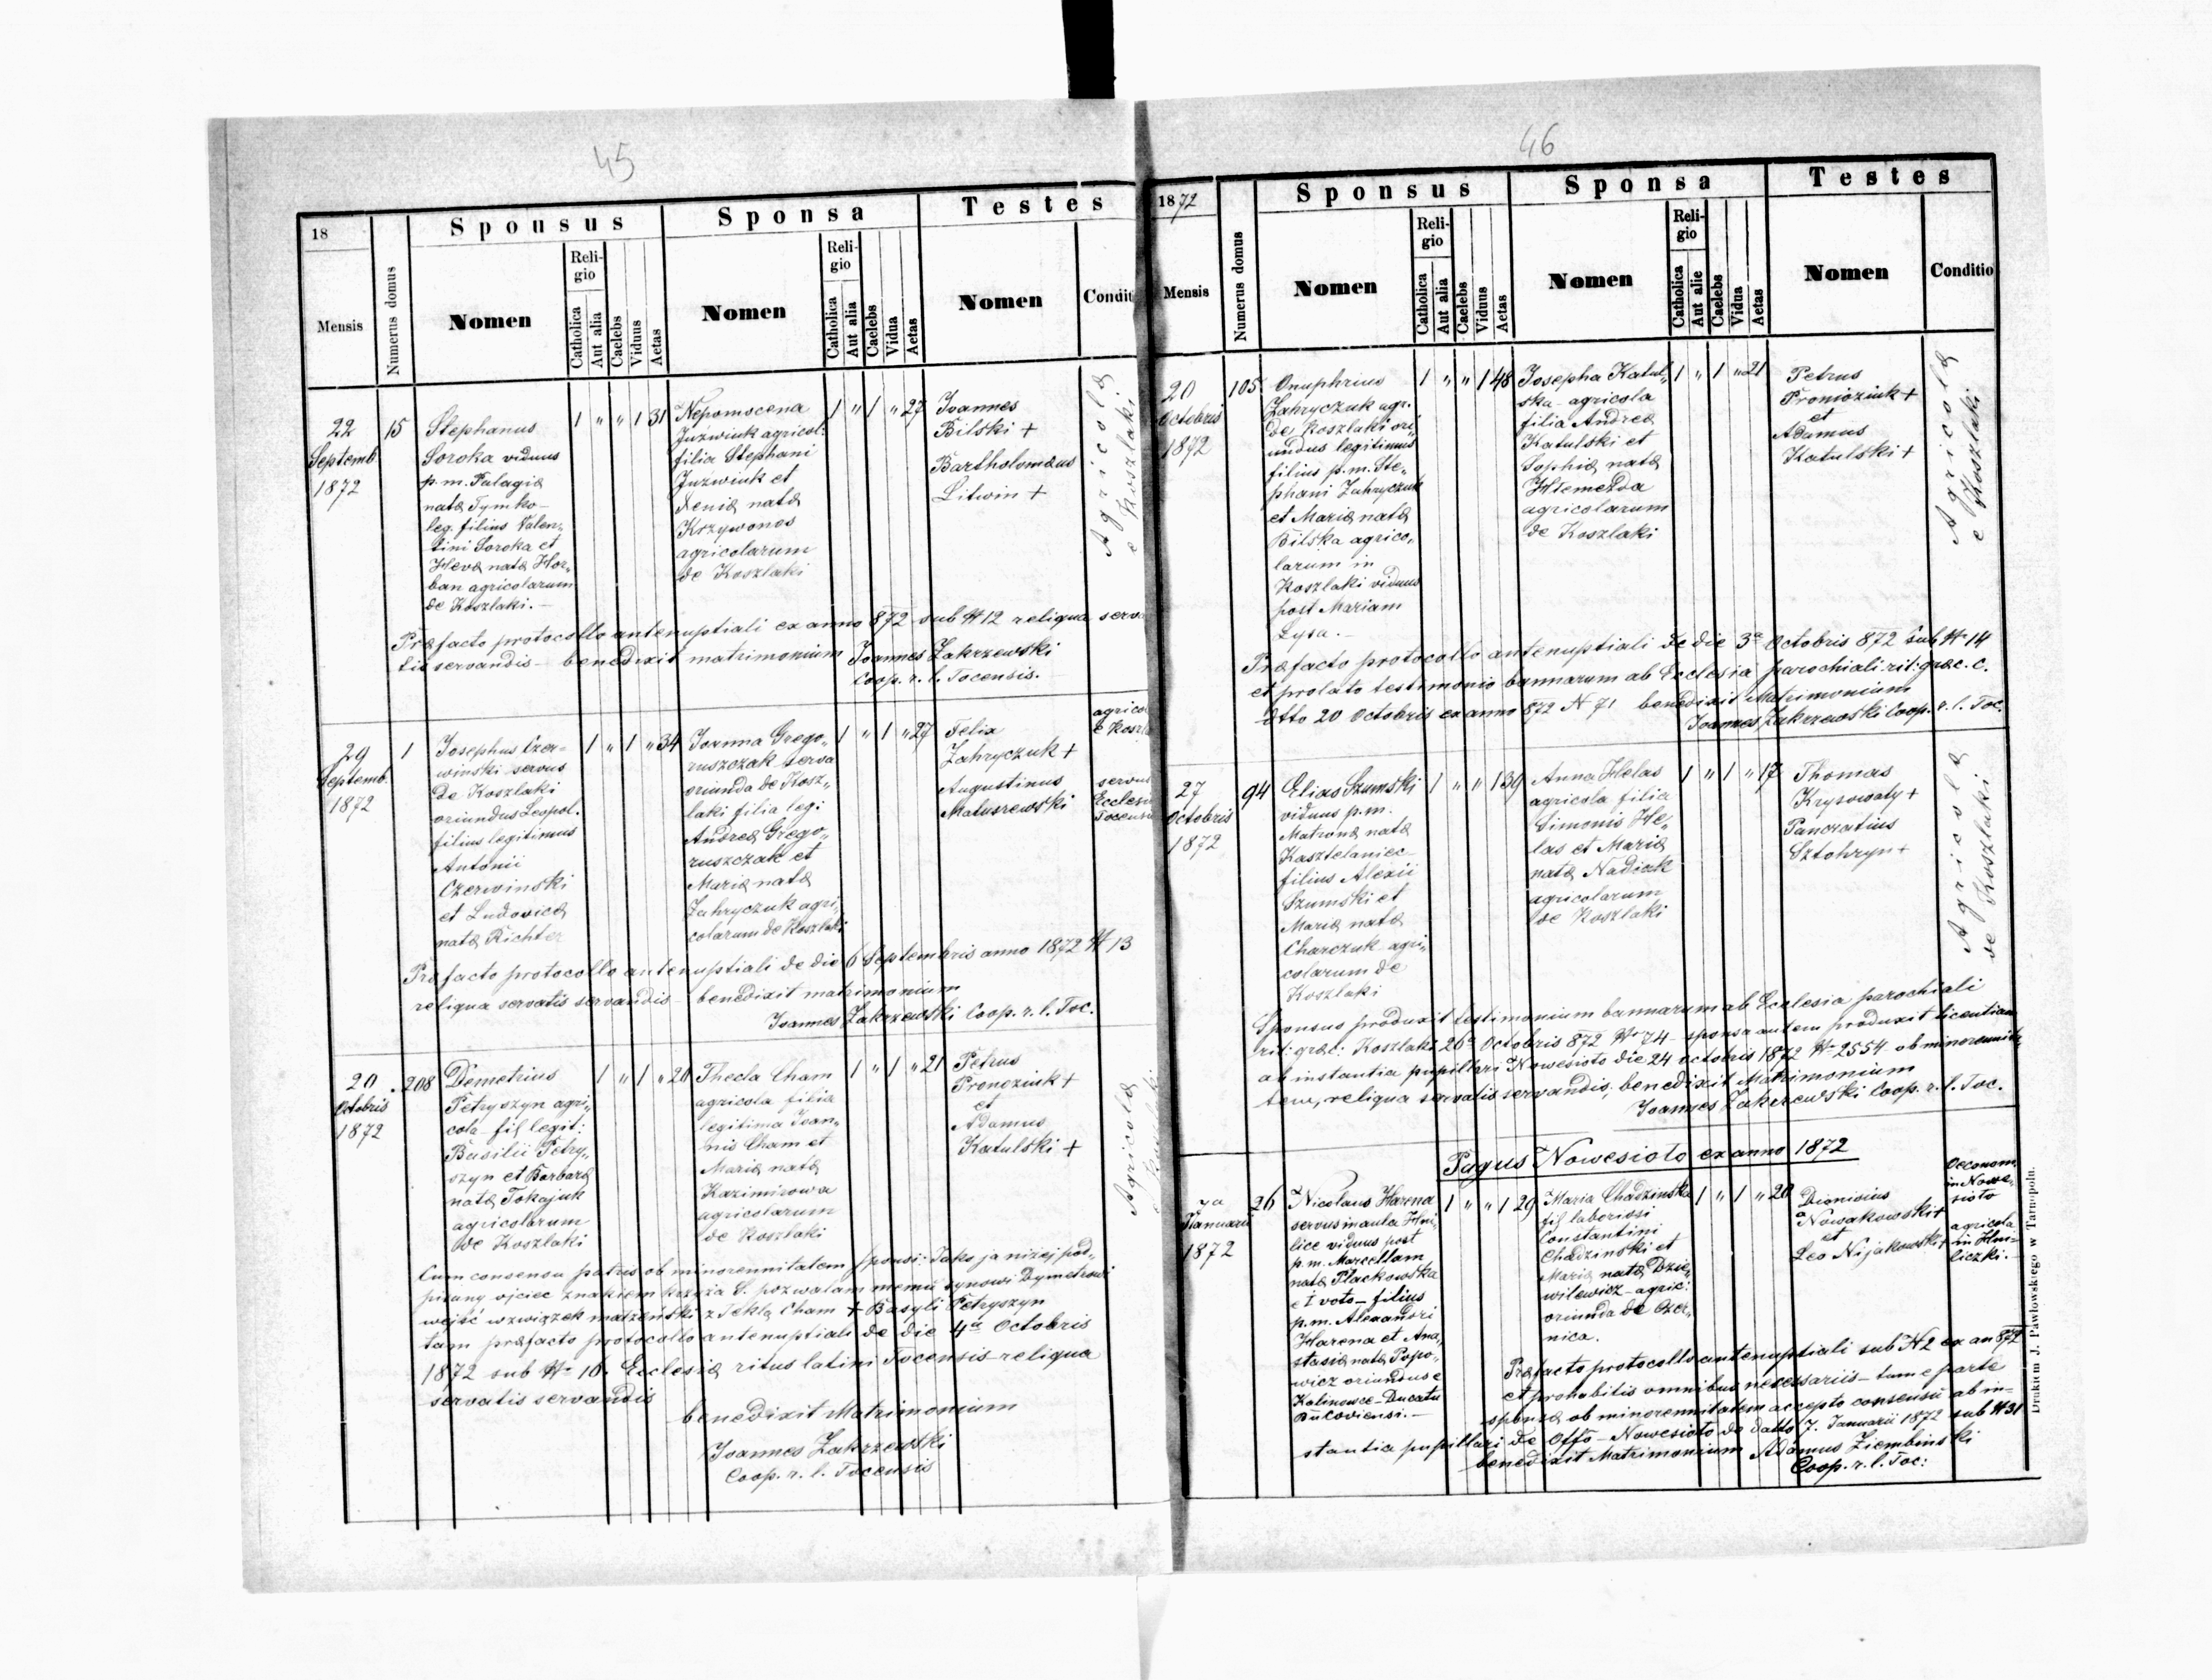 45
18
Mensis
Numerus domus
Sponsus
Nomen
Reli-
gio
Catholica
Aut alia
Caelebs
Viduus
Aetas
Sponsa
Nomen
Reli-
gio
Catholica
Aut alia
Caelebs
Vidua
Aetas
Testes
Nomen
Condit
22
Septemb.
1872
15
Stephanus
Soroka viduus
p. m. Palagiæ
natæ Tymko-
leg. filius Valen„
tini Soroka et
Hevæ natæ Hor„
ban agricolarum
de Koszlaki.-
1 „ „ 1 31
Nepomscena
Juzwiuk agricol:
filia Stephani
Juzwiuk et
Xeniæ natæ
Krzywonos
agricolarum
de Koszlaki
1 „ 1 „ 27
Joannes
Bilski +
Bartholomæus
Litwin +
Agricolæ
e Koszlaki
Præfacto protocollo antenuptiali ex anno 872 sub № 12 reliqua serva
tis servandis- benedixit matrimonium Joannes Zakrzewski
Coop. r. l. Tocensis.
29
Septemb.
1872
1
Josephus Czer-
winski servus
de Koszlaki
oriundus Leopol.
filius legitimus
Antonii
Czerwinski
et Ludovicæ
natæ Richter
1 „ 1 „ 34
Joanna Grego„
ruszczak serva
oriunda de Kosz„
laki filia legi:
Andreæ Grego„
ruszczak et
Mariæ natæ
Zahryczuk agri„
colarum de Koszlaki
1 „ 1 „ 27
Felix
Zahryczuk +
Augustinus
Matuszewski
agrico
e Koszl
servus
Ecclesiæ
Tocensis
Præfacto protocollo antenuptiali de die 6 Septembris anno 1872 № 13
reliqua servatis servandis- benedixit matrimonium
Joannes Zakrzewski Coop. r. l. Toc.
20
Octobris
1872
208
Demetrius
Petryszyn agri„
cola- fil legit:
Basilii Petry„
szyn et Barbaræ
natæ Tokajuk
agricolarum
de Koszlaki
1 „ 1 „ 20
Thecla Cham
agricola filia
legitima Joan„
nis Cham et
Mariæ natæ
Kazimirowa
agricolarum
de Koszlaki
1 „ 1 „ 21
Petrus
Pronoziuk +
et
Adamus
Katulski +
Agricolæ
Cum consensu patris ob minorennitatem sponsi: Jako ja niżej pod„
pisany ojciec znakiem krzyża S. pozwalam memu synowi Dymetrowi
wejść w związek małżeński z Teklą Cham + Basyli Petryszyn
tam præfacto protocollo antenuptiali de die 4ᵃ Octobris
1872 sub № 16. Ecclesiæ ritus latini Tocensis- reliqua
servatis servandis
benedixit Matrimonium
Joannes Zakrzewski
Coop. r. l. Tocensis
46
1872
Mensis
Numerus domus
Sponsus
Nomen
Reli-
gio
Catholica
Aut alia
Caelebs
Viduus
Aetas
Sponsa
Nomen
Reli-
gio
Catholica
Aut alie
Caelebs
Vidua
Aetas
Testes
Nomen
Conditio
20
Octobris
1872
105
Onuphrius
Zahryczuk agr.
de Koszlaki ori„
undus legitimus
filius p. m. Ste„
phani Zahryczuk
et Mariæ natæ
Bilska agrico„
larum in
Koszlaki viduus
post Mariam
Lysa.-
1 „ „ 1 48
Josepha Katul„
ska- agricola
filia Andreæ
Katulski et
Sophiæ natæ
Htemezda
agricolarum
de Koszlaki
1 „ 1 „ 21
Petrus
Pronioziuk +
et
Adamus
Katulski +
Agricolæ
e Koszlaki
Præfacto protocollo antenuptiali de die 3ᵃ Octobris 872 sub № 14
et prolato testimonio bannarum ab Ecclesia parochiali rit: græc. c.
dtto 20 Octobris ex anno 872 N 71 benedixit Matrimonium
Joannes Zakrzewski Coop. r. l. Toc.
27
Octobris
1872
94
Elias Szumski
viduus p. m.
Matronæ natæ
Kasztelaniec
filius Alexii
Szumski et
Mariæ natæ
Charczuk- agri„
colarum de
Koszlaki
1 „ „ 1 39
Anna Helas
agricola filia
Simonis He„
las et Mariæ
natæ Nadiak
agricolarum
de Koszlaki
1 „ 1 „ 17
Thomas
Krysowaty +
Pancratius
Sztohryn +
Agricolæ
de Koszlaki
Sponsus produxit testimonium bannarum ab Ecclesia parochiali
rit: græc: Koszlaki 26ᵃ Octobris 872 № 74- sponsa autem produxit licentiam
ab instantia pupillari Nowesioto die 24 octobris 1872 № 2554 ob minorennita„
tem, reliqua servatis servandis, benedixit Matrimonium
Joannes Zakrzewski Coop. r. l. Toc.
Pagus Nowesioto ex anno 1872
7a
Januarii
1872
26
Nicolaus Harena
servus in aula Hni„
lice viduus post
p. m. Marcellam
natæ Plackowska
et voto- filius
p. m. Alexandri
Harena et Ana„
stasiæ natæ Popo„
wicz oriundus e
Kalinowce- Ducatu
Bucoviensi.-
1 „ „ 1 29
Maria Chadzinska
fil laboriosi
Constantini
Chadzinski et
Mariæ natæ Dzie„
wilewicz- agric:
oriunda de Czer„
nica.
1 „ 1 „ 20
Dionisius
Nowakowski +
et
Leo Nijakowski +
Oeconom.
in Nowe„
sioto
agricola
in Hni„
liczki.-
Præfacto protocollo antenuptiali sub N 2 ex an 872
et prohabitis omnibus necessariis- tum e parte
sponsæ ob minorennitatem accepto consensu ab in-
stantia pupillari de Offo- Nowesioto de datto 7. Januarii 1872 sub № 31
benedixit Matrimonium Adamus Ziembinski
Coop. r. l. Toc:
Drukiem J. Pawłowskiego w Tarnopolu.